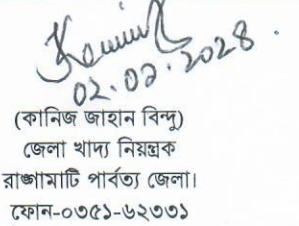 02.02.2028
(কানিজ জাহান বিন্দু)
জেলা খাদ্য নিয়ন্ত্রক
রাঙ্গামাটি পার্বত্য জেলা।
ফোন-০৩৫১-৬২৩৩১